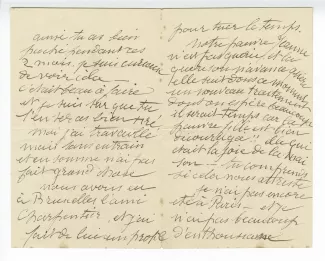 ainsi tu as bien
pioché pendant ces
2 mois. je suis curieux
de voir cela
c'était beau à faire
et je suis sûr que tu
t'en es bien tiré.
moi j'ai travaillé
mais sans entrain
et en somme n'ai pas
fait grand chose
nous avons eu
à Bruxelles l'ami
Charpentier et j'ai
fait de lui un
pour tuer le temps.
Notre pauvre Jeanne
n'est pas
elle suit en ce moment
un nouveau traitement
dont on espère beaucoup
il serait temps car la
pauvre fille est bien
découragée elle qui
était la joie de la mai
son — tu comprends
si cela nous attriste
je n'ai pas encore
été à Paris — et je
n'ai pas beaucoup
d'enthousiasme